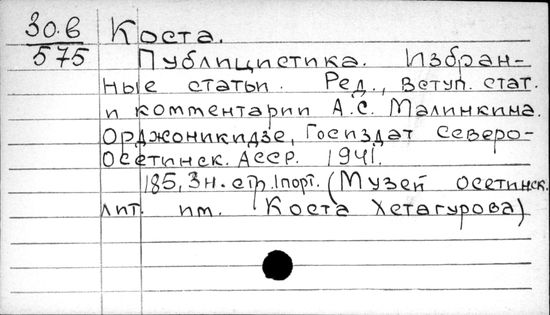 30.в
575
Коста.
Публицистика. Избран-
ные статьи. Ред., вступ. стат.
и комментарии А.С. Малинкина.
Орджоникидзе, Госиздат Северо-
Осетинск. АССР. 1941.
185, 3 н. стр. 1 порт. (Музей осетинск.
лит. им. Коста Хетагурова)